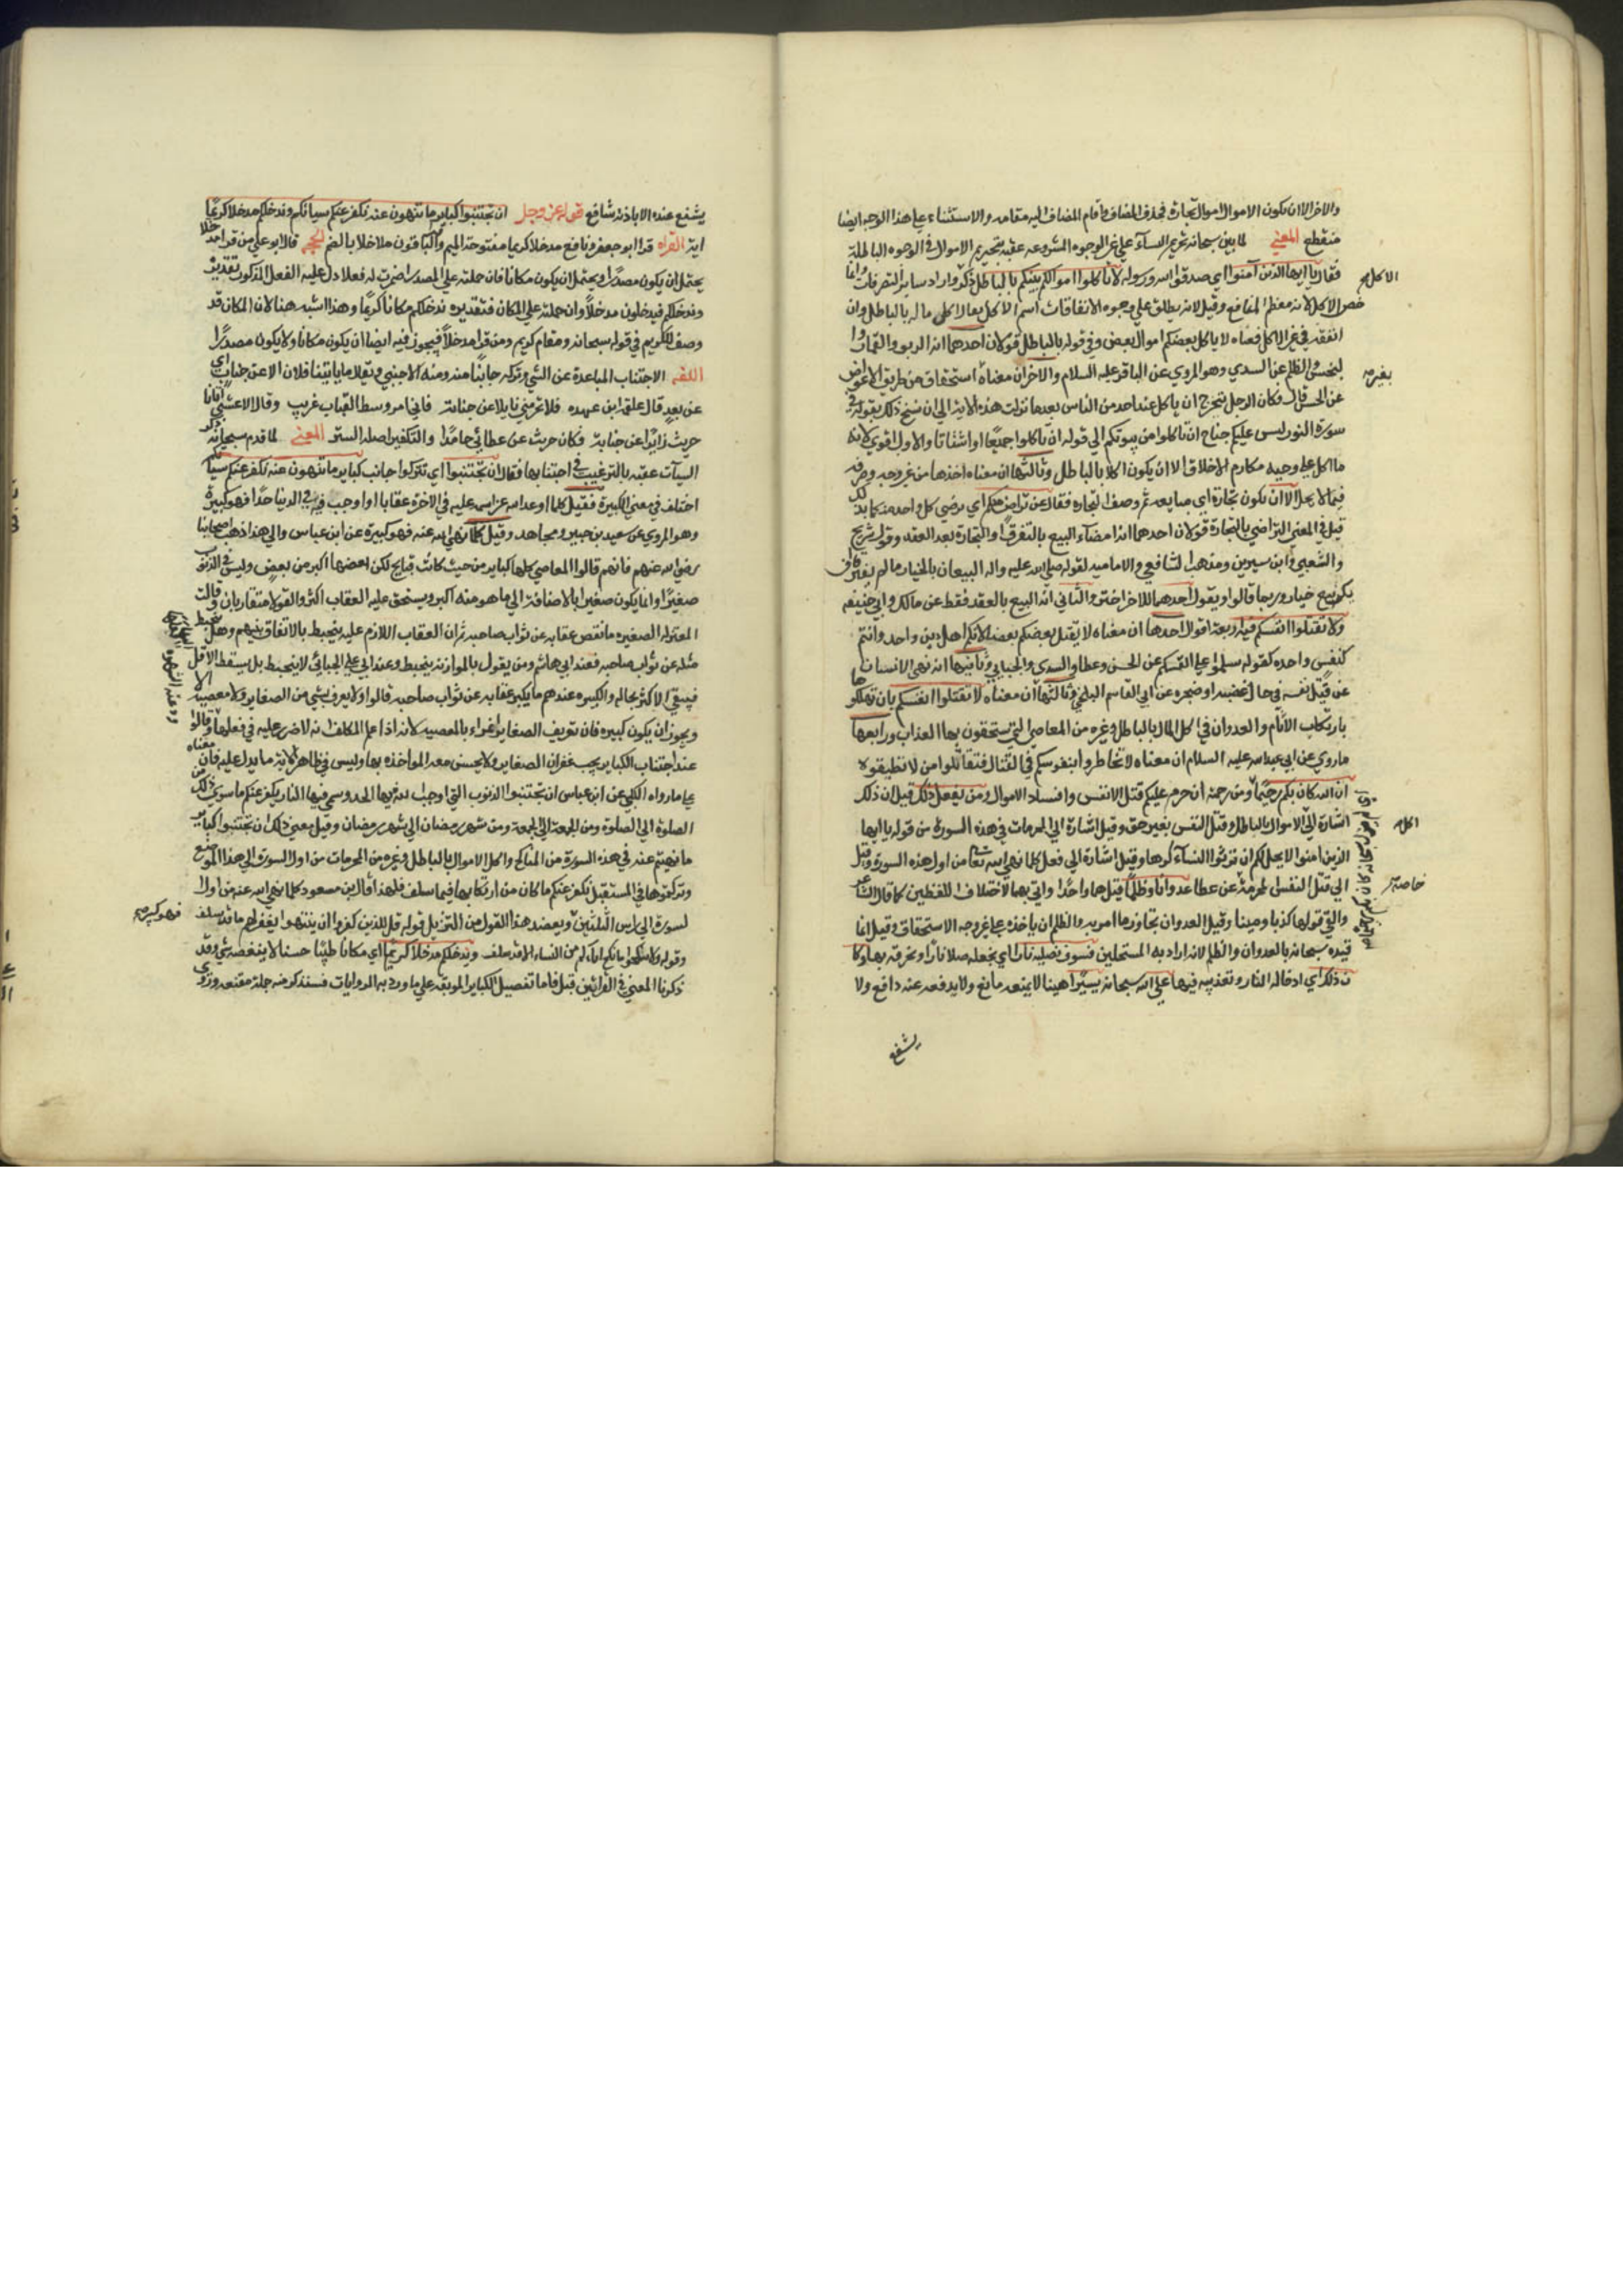 والاخر الا ان يكون الاموال اموال تجارة فحذف المضاف واقام المضاف اليه مقامه والاستثناء علي هذا الوجه ايضا
منقطع المعني لما بين سبحانه تحريم النسآء علي غير الوجوه المشروعه عقبه بتحريم الاموال في الوجوه الباطلة
فقال يا ايها الذين آمنوا اي صدقوا الله ورسوله لا تاكلوا اموالكم بينكم بالباطل ذكر واراد ساير التصرفات وانما
الاكل
خص الاكل لانه معظم المنافع وقيل لانه يطلق علي وجوه الانفاقات اسم الاكل يقال اكل ماله بالباطل وان
انفقه في غير الاكل فمعناه لا ياكل بعضكم اموال بعض وفي قوله بالباطل قولان احدهما انه الربو والقمار وا
لبخس والظلم عن السدي وهو المروي عن الباقر عليه السلام والاخر ان معناه استحقاق من طريق الاعواض
بغير
عن الحسن قال فكان الرجل يتحرج ان ياكل عند احد من الناس بعدما نزلت هذه الاية الي ان نسخ ذلك بقوله في
سورة النور ليس عليكم جناح ان تاكلوا من بيوتكم الي قوله ان تاكلوا جميعا او اشتاتا والاول اقوي لانه
ما اكل علي وجه مكارم الاخلاق الا ان يكون اكلا بالباطل وثالثها ان معناه اخذها من غير وجهه وصرفه
فيما لا يحل الا ان تكون تجارة اي مبايعه ثم وصف التجاره فقال عن تراض منكم اي يرضي كل واحد منكما بذلك
قيل في المعني التراضي بالتجارة قولان احدهما انه امضآء البيع بالتفرق او التجارة بعد العقد وقول شريح
والشعبي وابن سيرين ومذهب الشافعي والامامية لقوله صلي الله عليه واله البيعان بالخيار ما لم يفترقا او
يكون بيع خيار وربما قالوا او يقول احدهما للاخر اختر والثاني انه البيع بالعقد فقط عن مالك وابي حنيفه
ولا تقتلوا انفسكم فيه اربعة اقوال احدها ان معناه لا يقتل بعضكم بعضا لانكم اهل دين واحد وانتم
كنفس واحده كقوله سلموا علي انفسكم عن الحسن وعطا والسدي والجبايي وثانيها انه نهي الانسان
عن قتل نفسه في حال غضب او ضجره عن ابي القاسم البلخي وثالثها ان معناه لا تقتلوا انفسكم بان تهلكوها
بارتكاب الآثام والعدوان في اكل المال بالباطل وغيره من المعاصي التي تستحقون بها العذاب ورابعها
ماروي عن ابي عبدالله عليه السلام ان معناه لا تخاطروا بنفوسكم في القتال فتقاتلوا من لا تطيقونه
ان الله كان بكم رحيمًا ومن رحمته ان حرم عليكم قتل الانفس وافساد الاموال ومن يفعل ذلك قيل ان ذلك
اشارة الي الاموال بالباطل وقتل النفس بغير حق وقيل اشارة الي المحرمات في هذه السورة من قوله يا ايها
اكل
الذين امنوا لا يحل لكم ان ترثوا النسآء كرها وقيل اشارة الي فعل كلما نهي الله تعا من اول هذه السورة وقيل
الي قتل النفس المحرمة عن عطا عدوانا وظلمًا قيل هما واحد واتي بهما لاختلاف اللفظين كما قال الشاعر
خاصة
والفي قولها كذبا ومينا وقيل العدوان تجاوز ما امر به والظلم ان ياخذه علي غير وجه الاستحقاق وقيل انما
قيده سبحانه بالعدوان والظلم لانه اراد به المستحلين فسوف نصليه نارا اي نجعله صلا نار او نحرقه بها وكا
ن ذلك اي ادخاله النار وتعذيبه فيها علي الله سبحانه يسيرًا هينا لا يمنعه مانع ولا يدفعه عنه دافع ولا
يشفع
يشفع عنده الا باذنه شافع قوله عز وجل ان تجتنبوا كباير ما تنهون عنه نكفر عنكم سياتكم وندخلكم مدخلا كريمًا
اية القراه قرا ابو جعفر ونافع مدخلا كريما مفتوحة الميم والباقون مدخلا بالضم الحجه قال ابو علي من قرا مدخلا
يحتمل ان يكون مصدرا ويحتمل ان يكون مكانا فان حملته علي المصدر اضمرت له فعلا دل عليه الفعل المذكور تقديره
وندخلكم فيدخلون مدخلًا وان حملته علي المكان فتقديره ندخلكم مكانا كريمًا وهذا اشبه هنا لان المكان قد
وصف بالكريم في قوله سبحانه ومقام كريم ومن قرا مدخلًا فيجوز فيه ايضا ان يكون مكانا ولا يكون مصدرًا
اللغه الاجتناب المباعدة عن الشي وتركه جانبًا منه ومنه الاجنبي ويقال ما ياتينا فلان الا عن جنابة اي
عن بعد قال علقمة ابن عبده فلا تحرمني نايلا عن جنابة فاني امرو وسط القباب غريب وقال الاعشي اتانا
حريث زايرًا عن جنابة فكان حريث عن عطائي جامدًا والتكفير اصله الستر المعني لما قدم سبحانه ذكر
السيآت عقبه بالترغيب في اجتنابها فقال ان تجتنبوا اي تتركوا جانب كباير ما تنهون عنه نكفر عنكم سيآتكم
اختلف في معني الكبيرة فقيل كلما اوعد الله عز اسمه عليه في الاخرة عقابا او اوجب فيه في الدنيا حدًا فهو كبيرة
وهو المروي عن سعيد بن جبير ومجاهد وقيل كلما نهي الله عنه فهو كبيرة عن ابن عباس والي هذا ذهب اصحابنا
رضي الله عنهم فانهم قالوا المعاصي كلها كباير من حيث كانت قبايح لكن بعضها اكبر من بعض وليس في الذنوب
صغيرًا وانما يكون صغيرا بالاضافة الي ما هو منه اكبر ويستحق عليه العقاب اكثر والقولان متقاربان وقالت
المعتزله الصغيره ما نقص عقابه عن ثواب صاحبه ثم ان العقاب اللازم عليه ينحبط بالاتفاق بينهم وهل ينحبط
مثله عن ثواب صاحبه فعند ابي هاشم ومن يقول بالموازنه ينحبط وعند ابي علي الجبائي لا ينحبط بل يسقط الاقل
فيبقي الاكثر بحاله والكبيره عندهم ما يكبر عقابه عن ثواب صاحبه قالوا ولا يعرف شي من الصغاير ولا معصيه الا
ويجوز ان يكون كبيره فان تعريف الصغاير اغراء بالمعصيه لانه اذا علم المكلف انه لا ضرر عليه في فعلها وقالوا
عند اجتناب الكباير يجب غفران الصغاير ولا يحسن معه المواخذه بها وليس في ظاهر الاية ما يدل عليه فان معناه
علي ما رواه الكلبي عن ابن عباس ان تجتنبوا الذنوب التي اوجب الله فيها الحد وسمي فيها النار يكفر عنكم ما سوي ذلك من
الصلوة الي الصلوة ومن الجمعة الي الجمعة ومن شهر رمضان الي شهر رمضان وقيل معني ذلك ان تجتنبوا كباير
ما نهيتم عنه في هذه السورة من المناكح واكل الاموال بالباطل وغيره من المحرمات من اول السورة الي هذا الموضع
وتركتموها في المستقبل نكفر عنكم ما كان من ارتكابها فيما سلف فلهذا قال بن مسعود كلما نهي الله عنه من اول ا
لسورة الي راس الثلثين ويعضد هذا القول من التنزيل قوله قل للذين كفروا ان ينتهوا يغفر لهم ما قد سلف
فهو كبيره
وقوله ولا تنكحوا ما نكح اباوكم من النساء الا ما قد سلف وندخلكم مدخلا كريمًا اي مكانا طيبًا حسنا لا ينغصه شي وقد
ذكرنا المعني في القرائتين قبل فاما تفصيل الكباير الموبقه علي ما ورد به الروايات فسنذكر منه جملة مقنعه وروي